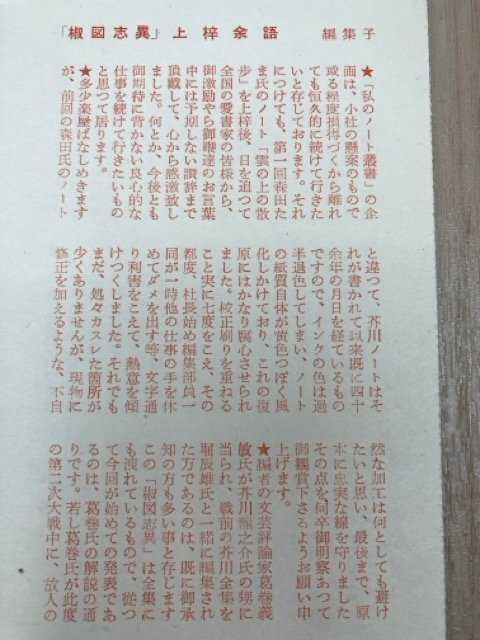 「椒図志異」上梓余語　編集子
★「私のノート叢書」の企
画は、小社の懸案のもので
或る程度損得づくから離れ
ても恒久的に続けて行きた
いと存じております。それ
につけても、第一回森田た
ま氏のノート「雲の上の散
歩」を上梓後、日を追つて
全国の愛書家の皆様から、
御激励やら御鞭達のお言葉
中には予期しない讃辞まで
頂戴して、心から感激致し
ました。何とか、今後とも
御期待に背かない良心的な
仕事を続けて行きたいもの
と思つて居ります。
★多少楽屋ばなしめきます
が、前回の森田氏のノート
と違つて、芥川ノートはそ
れが書かれて以来既に四十
余年の月日を経ているもの
ですので、インクの色は過
半退色してしまい、ノート
の紙質自体が黄色つぽく風
化しかけており、これの復
原にはかなり腐心させられ
ました。校正刷りを重ねる
こと実に七度をこえ、その
都度、社長始め編集部員一
同が一時他の仕事の手を休
めてダメを出す等、文字通
り利害をこえて、熱意を傾
けつくしました。それでも
まだ、処々カスレた箇所が
少くありませんが、現物に
修正を加えるような、不自
然な加工は何としても避け
たいと思い、最後まで、原
本に忠実な線を守りました
その点を何卒御明察あつて
御観賞下さるようお願い申
上げます。
★編者の文芸評論家葛巻義
敏氏が芥川龍之介氏の甥に
当られ、戦前の芥川全集を
堀辰雄氏と一緒に編集され
た方であるのは、既に御承
知の方も多い事と存じます
この「椒図志異」は全集に
も洩れているもので、従つ
て今回が始めての発表であ
るのは、葛巻氏の解説の通
りです。若し葛巻氏が此度
の第二次大戦中に、故人の